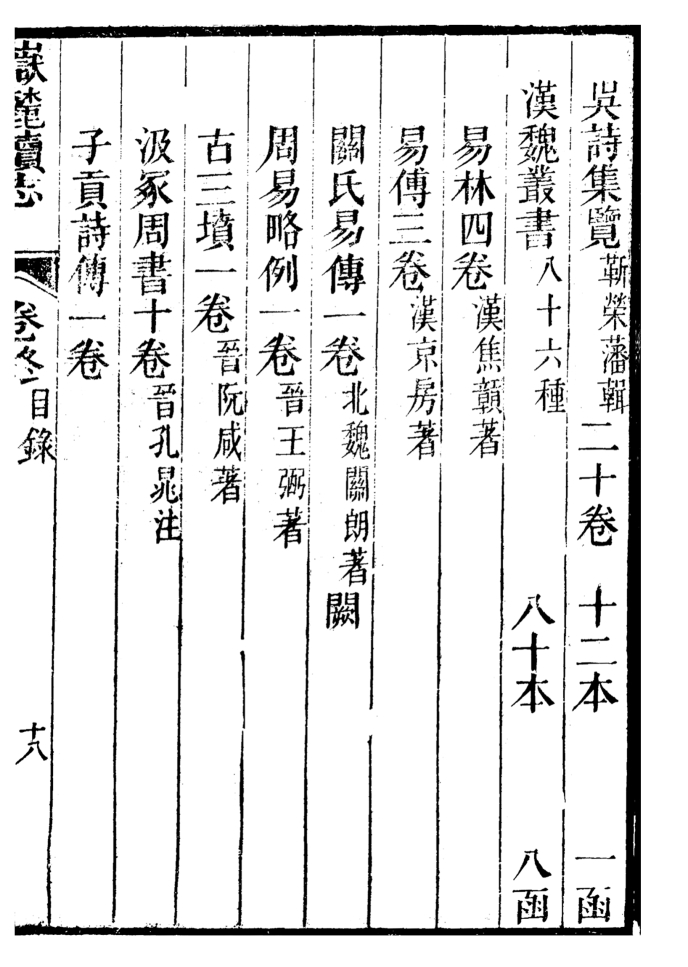 吳詩集覽靳榮藩輯二十卷　十二本　一函
漢魏叢書八十六種　八十本　八函
易林四卷漢焦贛著
易傳三卷漢京房著
關氏易傳一卷北魏關朗著闕
周易略例一卷晉王弼著
古三墳一卷晉阮咸著
汲冢周書十卷晉孔晁注
子貢詩傳一卷
嶽麓續志　卷終　目錄　十八